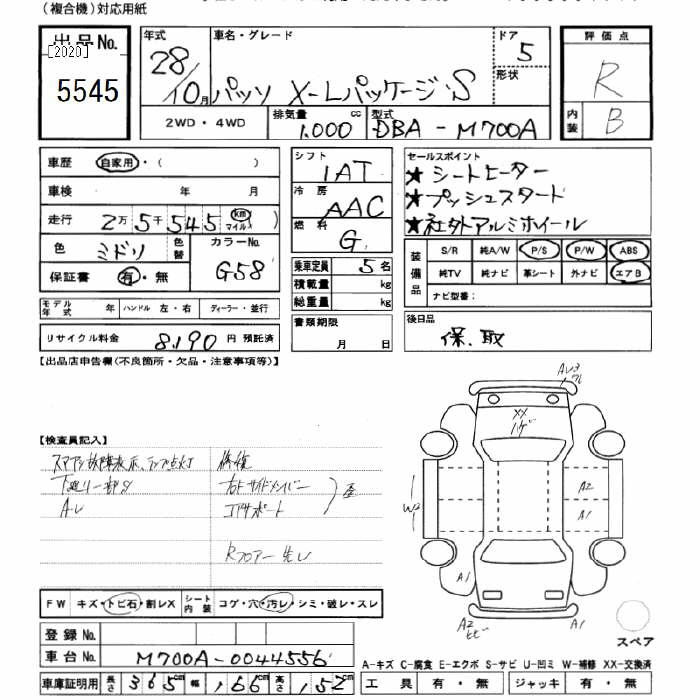 (複合機)対応用紙
出品No.
[2020]
5545
年式 28/10月
車名・グレード パッソ X-Lパッケージ・S
ドア 5
形状
2WD・4WD
排気量 1,000 cc
型式 DBA-M700A
評価点
R
内装 B
車歴 自家用・( )
車検 年 月
走行 2万5千545 km マイル )
色 ミドリ 色替
カラーNo. G58
保証書 有・無
モデル年式 年 ハンドル 左・右 ディーラー・並行
リサイクル料金 8,190 円 預託済
シフト IAT
冷房 AAC
燃料 G
乗車定員 5名
積載量 kg
総重量 kg
書類期限 月 日
セールスポイント
★シートヒーター
★プッシュスタード
★社外アルミホイール
装備品
S/R 純A/W P/S P/W ABS
純TV 純ナビ 革シート 外ナビ エアB
ナビ型番:
後日品
保.取
【出品店申告欄(不良箇所・欠品・注意事項等)】
【検査員記入】
スマアシ故障表示、ランプ点灯
下廻り一部S
AU
修復
右Fサイドメンバー
コアサポート
歪
Rフロアー 先し
XX
ハゲ
W2
A2
A1
A1
A2
A1
スペア
FW キズ・トビ石・割レX
シート内装 コゲ・穴・汚レ・シミ・破レ・スレ
登録No.
車台No. M700A-0044556
車庫証明用 長さ 365 幅 166 高さ 152
A-キズ C-腐食 E-エクボ S-サビ U-凹ミ W-補修 XX-交換済
工具 有・無 ジャッキ 有・無